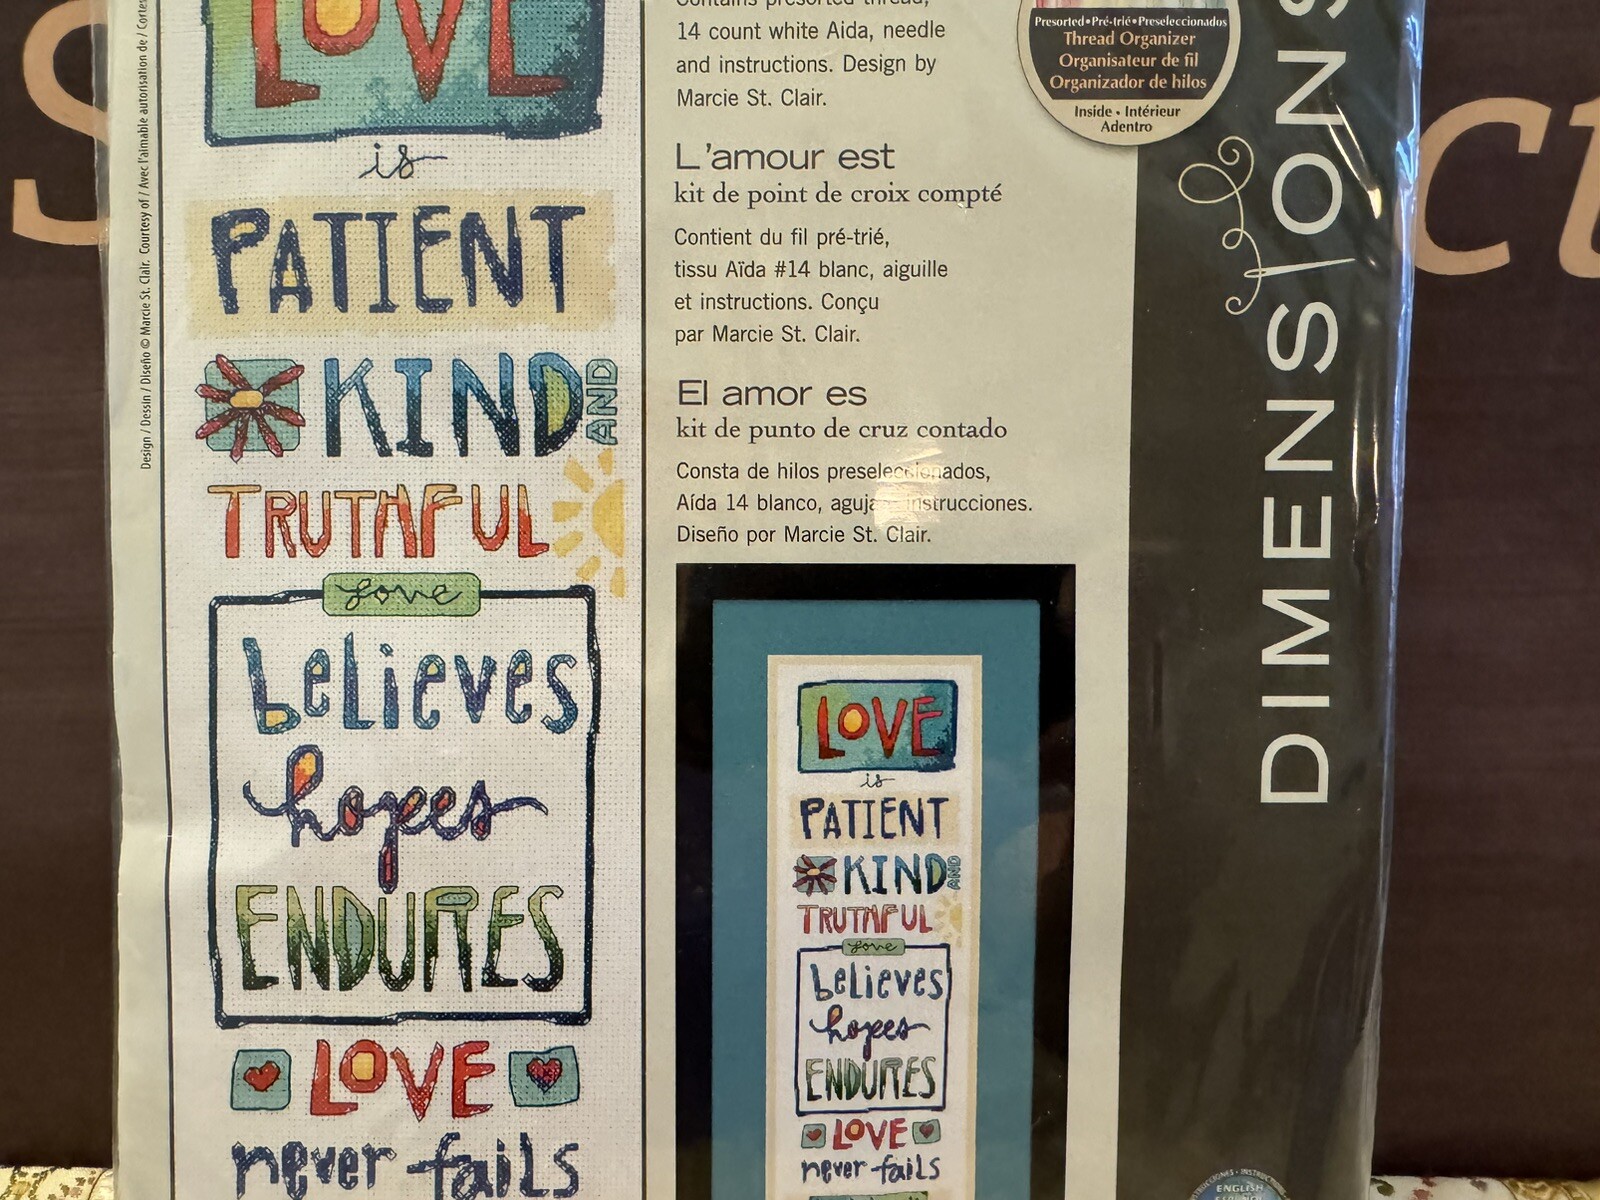 Contains presorted thread,
14 count white Aida, needle
and instructions. Design by
Marcie St. Clair.
L'amour est
kit de point de croix compté
Contient du fil pré-trié,
tissu Aïda #14 blanc, aiguille
et instructions. Conçu
par Marcie St. Clair.
El amor es
kit de punto de cruz contado
Consta de hilos preseleccionados,
Aída 14 blanco, aguja instrucciones.
Diseño por Marcie St. Clair.
Presorted•Pré-trié•Preseleccionados
Thread Organizer
Organisateur de fil
Organizador de hilos
Inside • Intérieur
Adentro
DIMENSIONS
Design / Dessin / Diseño © Marcie St. Clair. Courtesy of / Avec l'aimable autorisation de /
LOVE
is
PATIENT
KIND AND
TRUTHFUL
love
believes
hopes
ENDURES
LOVE
never fails
LOVE
is
PATIENT
KIND AND
TRUTHFUL
love
believes
hopes
ENDURES
LOVE
never fails
ENGLISH